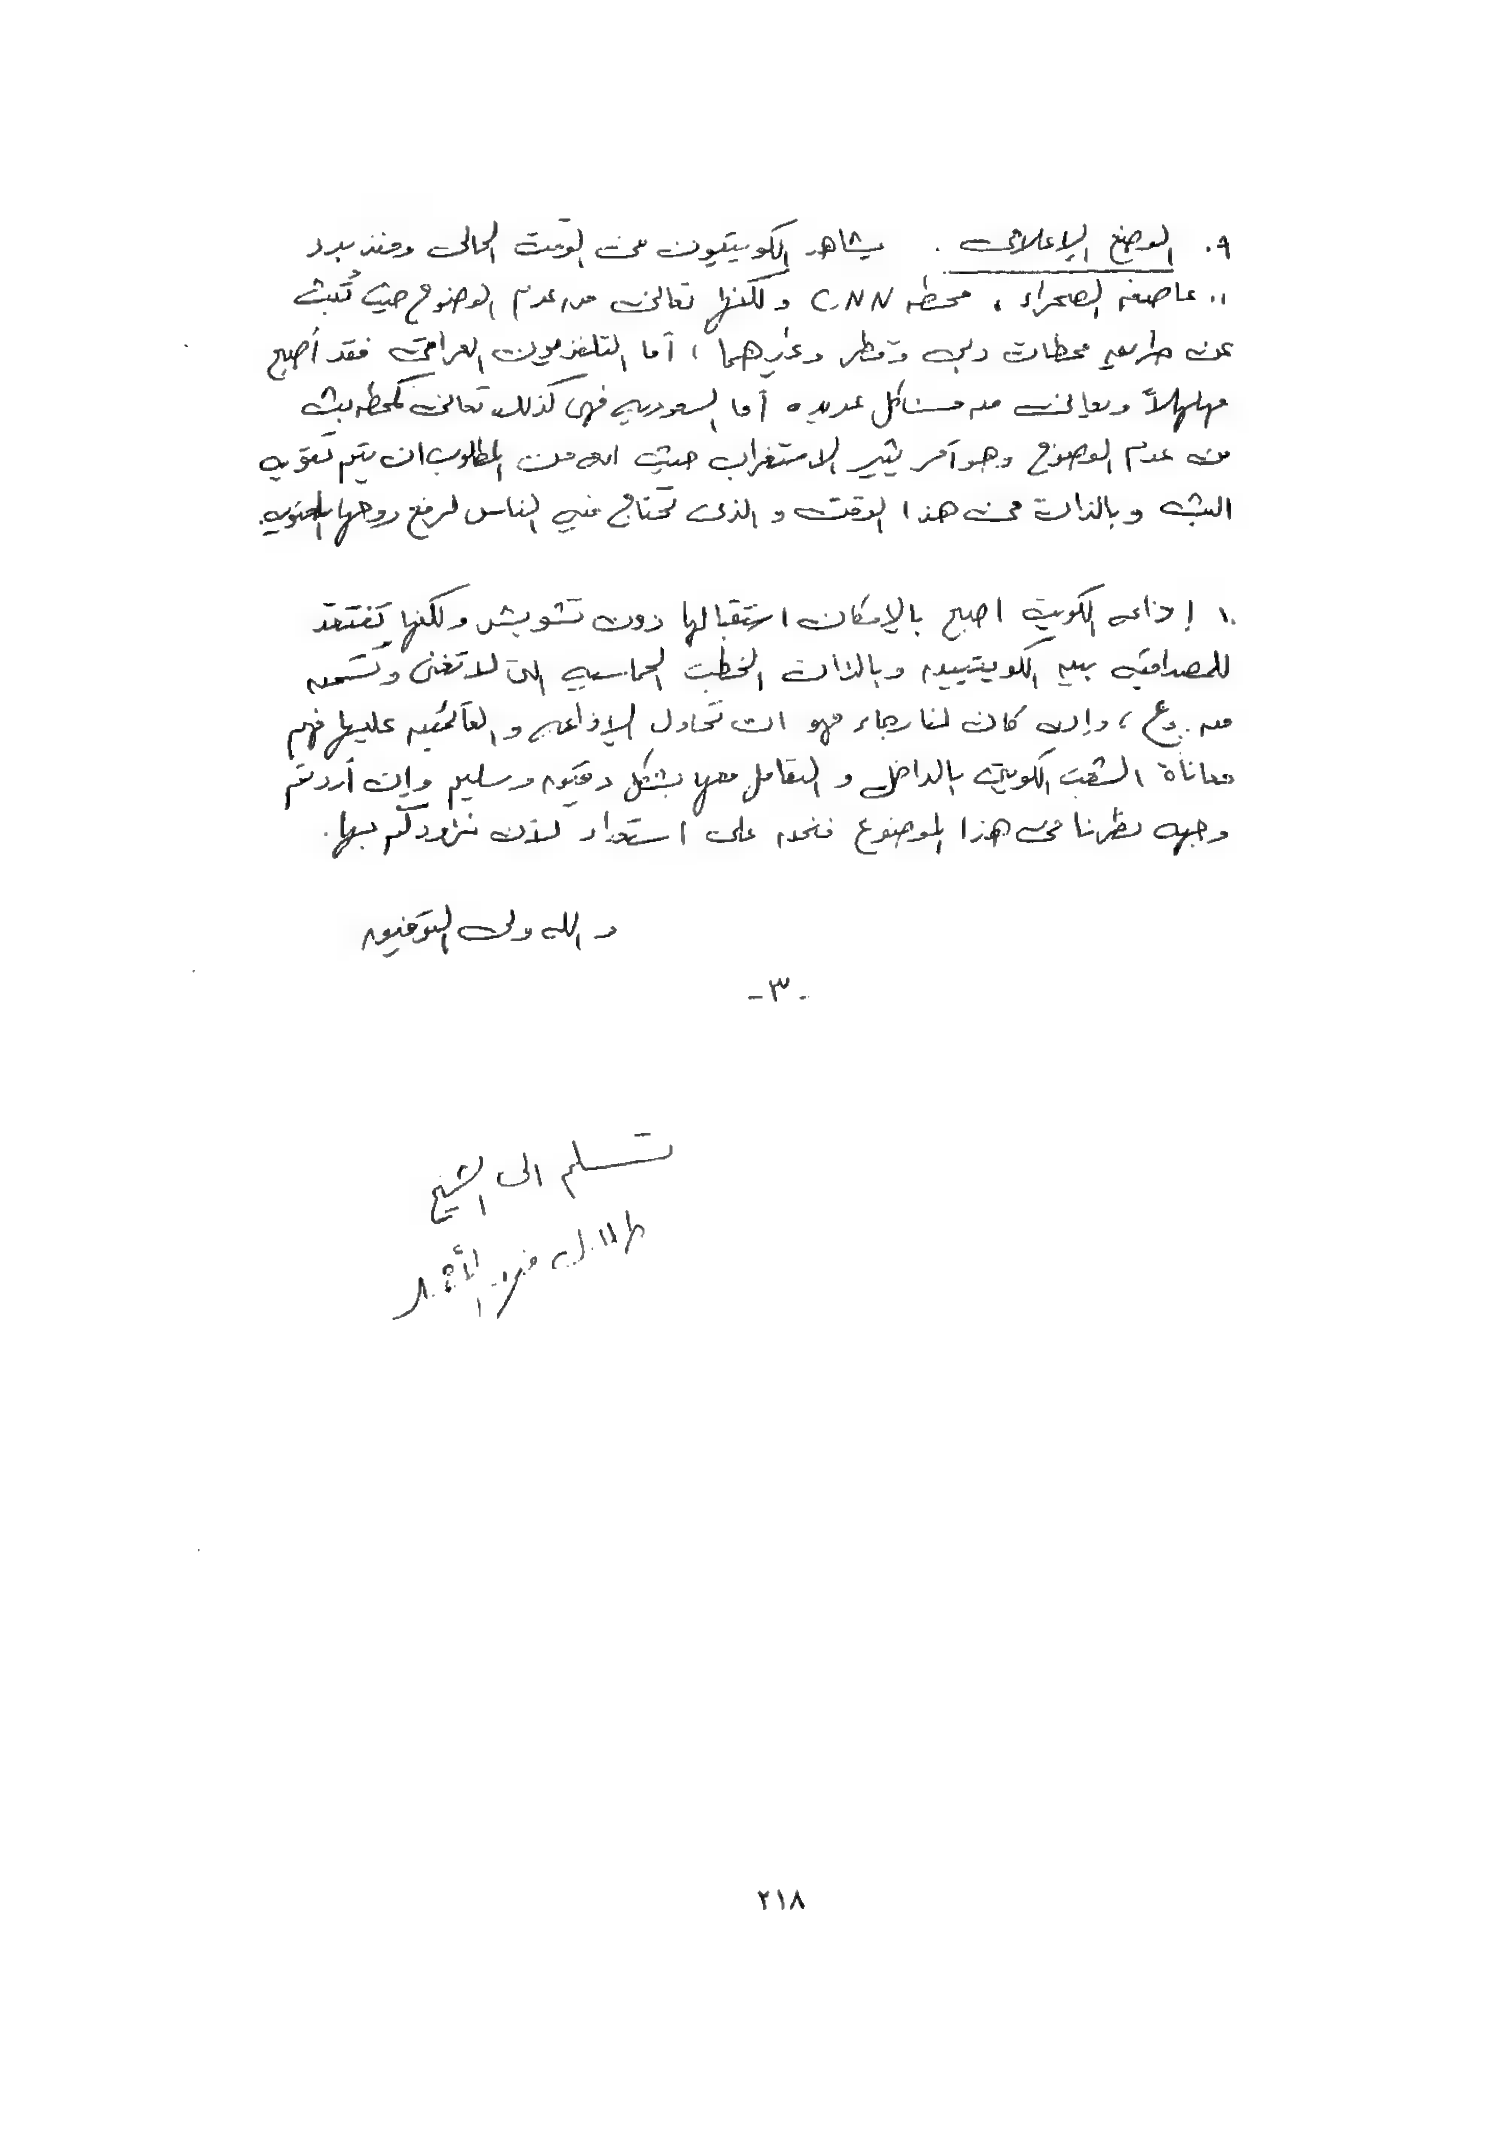 ٩. الوضع الإعلامي . يشاهد الكويتيون في الوقت الحالي ومنذ بدء
" عاصفة الصحراء ، محطة CNN ولكنها تعاني من عدم الوضوح حيث تُبث
عن طريق محطات دبي وقطر وغيرهما ، أما التلفزيون العراقي فقد أصبح
مهلهلاً ويعاني من مشاكل عديدة أما السعودية فهي كذلك تعاني كمحطة بث
من عدم الوضوح وهو أمر يثير الاستغراب حيث انه من المطلوب ان يتم تقوية
البث وبالذات في هذا الوقت والذي تحتاج فيه الناس لرفع روحها المعنوية.
١٠ إذاعة الكويت اصبح بالإمكان استقبالها دون تشويش ولكنها تفتقد
للمصداقية بين الكويتيين وبالذات الخطب الحماسية التي لا تغني وتسمن
من جوع ، وإن كان لنا رجاء فهو ان تحاول الإذاعة والقائمين عليها فهم
معاناة الشعب الكويتي بالداخل والتعامل معها بشكل دقيق وسليم وإن أردتم
وجهة نظرنا في هذا الموضوع فنحن على استعداد لأن نزودكم بها.
والله ولي التوفيق
-٣-
تسلم الى الشيخ
طلال فهد الأحمد
٢١٨